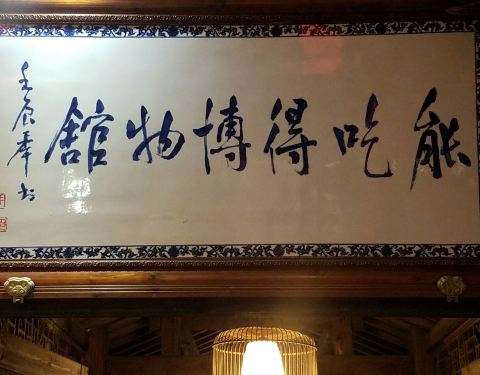 能吃得博物舘
壬辰年书